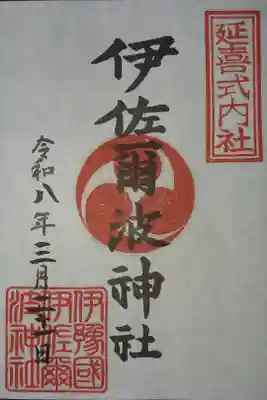 延喜式内社
伊佐爾波神社
令和八年三月
伊豫國
伊佐爾
波神社